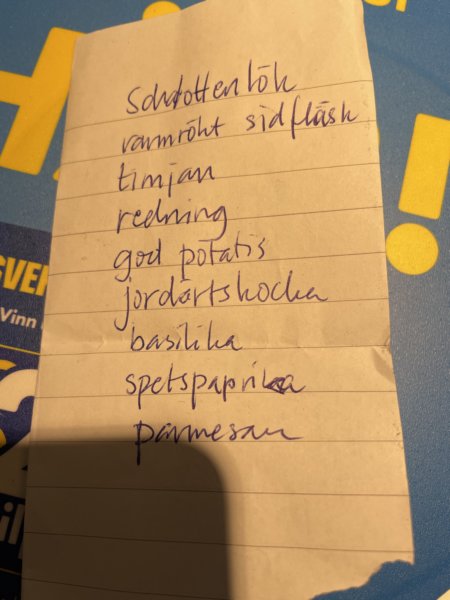 Schalottenlök
varmrökt sidfläsk
timjan
redning
god potatis
jordärtskocka
basilika
spetspaprika
parmesan
Vinn